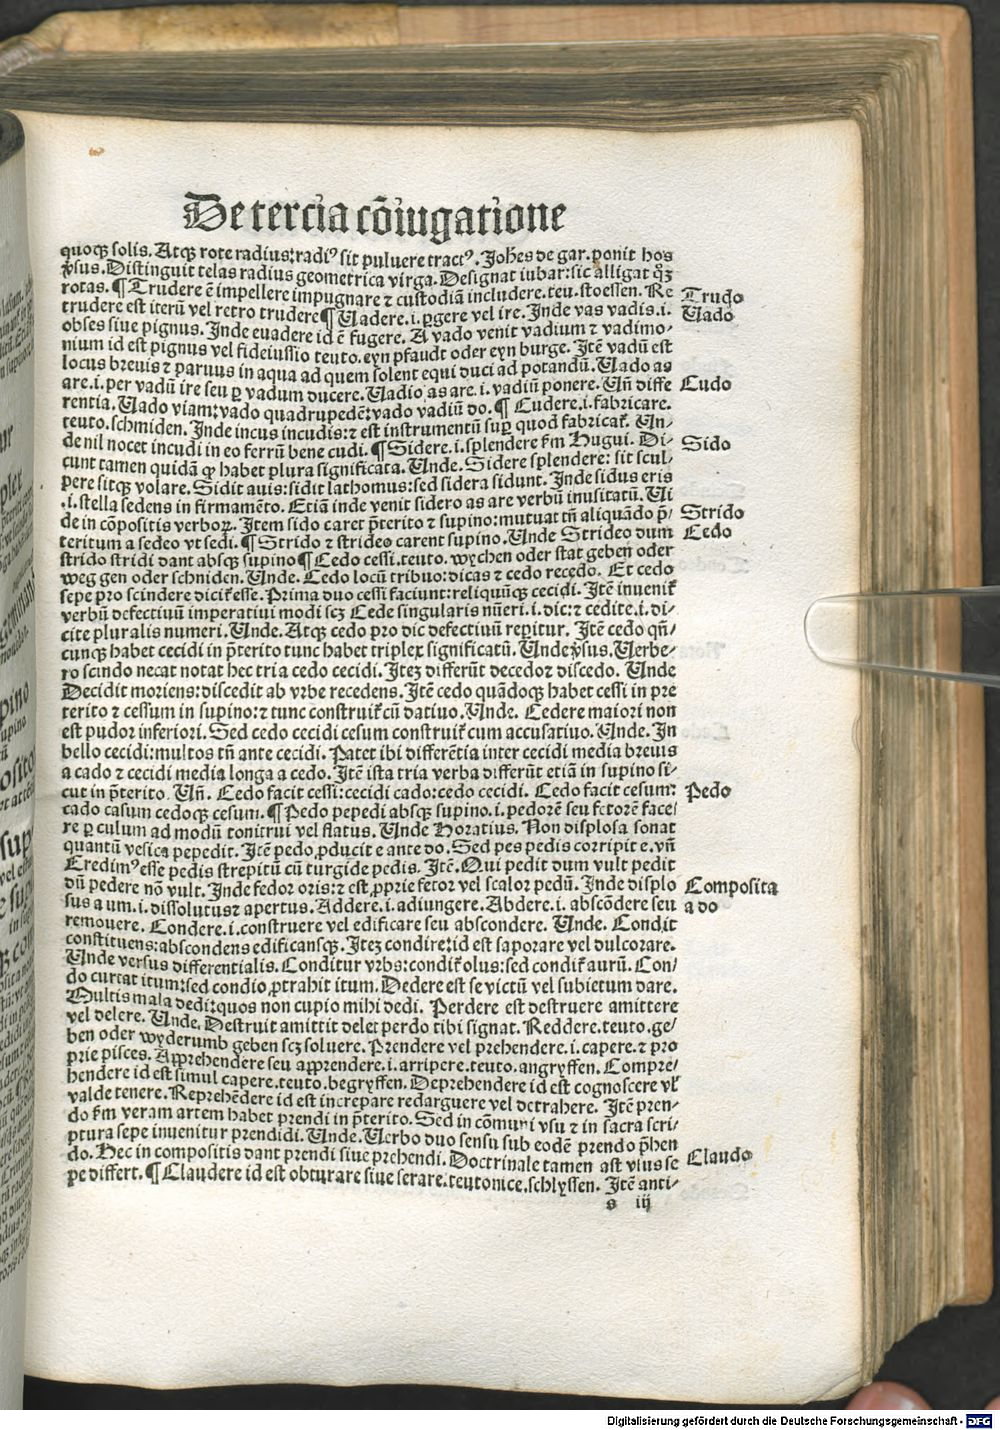 De tercia cõiugatione
quoqꝫ solis. Atqꝫ rote radius: radiꝰ sit puluere tractꝰ. Joh̃es de gar. ponit hos
ꝟsus. Distinguit telas radius geometrica virga. Designat iubar: sic alligat qꝫ
rotas. ¶ Trudere ẽ impellere impugnare ⁊ custodiã includere. teu. stoessen. Re
trudere est iterũ vel retro trudere ¶ Uadere .i. ꝑgere vel ire. Inde vas vadis .i.
obses siue pignus. Inde euadere id ẽ fugere. A vado venit vadium ⁊ vadimo⸗
nium id est pignus vel fideiussio teuto. eyn pfandt oder eyn burge. Itẽ vadũ est
locus breuis ⁊ paruus in aqua ad quem solent equi duci ad potandũ. Uado as
are .i. per vadũ ire seu ꝑ vadum ducere. Uadio as are .i. vadiũ ponere. Uñ diffe
rentia. Uado viam: vado quadrupedẽ: vado vadiũ do. ¶ Cudere .i. fabricare.
teuto. schmiden. Inde incus incudis: ⁊ est instrumentũ suꝑ quod fabricat᷑. Un⸗
de nil nocet incudi in eo ferrũ bene cudi. ¶ Sidere .i. splendere ẜm Hugui. Di⸗
cunt tamen quidã ꝙ habet plura significata. Unde. Sidere splendere: sit scul⸗
pere sitqꝫ volare. Sidit auis: sidit lathomus: sed sidera sidunt. Inde sidus eris
.i. stella sedens in firmamẽto. Etiã inde venit sidero as are verbũ inusitatũ. Ui
de in cõpositis verboꝝ. Item sido caret p̃terito ⁊ supino: mutuat tñ aliquãdo p̃⸗
teritum a sedeo vt sedi. ¶ Strido ⁊ strideo carent supino. Unde Strideo dum
strido stridi dant absqꝫ supino ¶ Cedo cessi. teuto. wychen oder stat geben oder
weg gen oder schniden. Unde. Cedo locũ tribuo: dicas ⁊ cedo recedo. Et cedo
sepe pro scindere dicit᷑ esse. Prima duo cessi faciunt: reliquũqꝫ cecidi. Itẽ inuenit᷑
verbũ defectiuũ imperatiui modi scꝫ Cede singularis nũeri .i. dic: ⁊ cedite .i. di⸗
cite pluralis numeri. Unde. Atqꝫ cedo pro dic defectiuũ reperitur. Itẽ cedo qñ⸗
cunqꝫ habet cecidi in p̃terito tunc habet triplex significatũ. Unde ꝟsus. Uerbe⸗
ro scindo necat notat hec tria cedo cecidi. Iteꝫ differũt decedo ⁊ discedo. Unde
Decidit moriens: discedit ab vrbe recedens. Itẽ cedo quãdoqꝫ habet cessi in pre
terito ⁊ cessum in supino: ⁊ tunc construit᷑ cũ datiuo. Unde. Cedere maiori non
est pudor inferiori. Sed cedo cecidi cesum construit᷑ cum accusatiuo. Unde. In
bello cecidi: multos tñ ante cecidi. Patet ibi differẽtia inter cecidi media breuis
a cado ⁊ cecidi media longa a cedo. Itẽ ista tria verba differũt etiã in supino si⸗
cut in p̃terito. Uñ. Cedo facit cessi: cecidi cado: cedo cecidi. Cedo facit cesum:
cado casum cedoqꝫ cesum. ¶ Pedo pepedi absqꝫ supino .i. pedorẽ seu fetorẽ face⸗
re ꝑ culum ad modũ tonitrui vel flatus. Unde Horatius. Non displosa sonat
quantũ vesica pepedit. Itẽ pedo ꝓducit e ante do. Sed pes pedis corripit e. vñ
Credimꝰ esse pedis strepitũ cũ turgide pedis. Itẽ. Qui pedit dum vult pedit
dũ pedere nõ vult. Inde fedor oris: ⁊ est ꝓprie fetor vel scalor pedũ. Inde displo
sus a um .i. dissolutus ⁊ apertus. Addere .i. adiungere. Abdere .i. abscõdere seu
remouere. Condere .i. construere vel edificare seu abscondere. Unde. Condit
constituens: abscondens edificansqꝫ. Iteꝫ condire: id est saporare vel dulcorare.
Unde versus differentialis. Conditur vrbs: condit᷑ olus: sed condit᷑ aurũ. Con⸗
do curtat itum: sed condio ꝓtrahit itum. Dedere est se victũ vel subietum dare.
Multis mala dedi: quos non cupio mihi dedi. Perdere est destruere amittere
vel delere. Unde. Destruit amittit delet perdo tibi signat. Reddere. teuto. ge⸗
ben oder wyderumb geben scꝫ soluere. Prendere vel prehendere .i. capere. ⁊ pro
prie pisces. Apprehendere seu apprendere .i. arripere. teuto. angryffen. Compre⸗
hendere id est simul capere. teuto. begryffen. Deprehendere id est cognoscere vl̃
valde tenere. Reprehẽdere id est increpare redarguere vel detrahere. Itẽ pren⸗
do ẜm veram artem habet prendi in p̃terito. Sed in cõmuni vsu ⁊ in sacra scri⸗
ptura sepe inuenitur prendidi. Unde. Uerbo duo sensu sub eodẽ prendo p̃hen
do. Hec in compositis dant prendi siue prehendi. Doctrinale tamen ast vsus se
pe differt. ¶ Claudere id est obturare siue serare. teutonice. schlyssen. Itẽ anti⸗
s iij
Trudo
Uado
Cudo
Sido
Strido
Cedo
Pedo
Composita
a do
Claudo
Digitalisierung gefördert durch die Deutsche Forschungsgemeinschaft - DFG